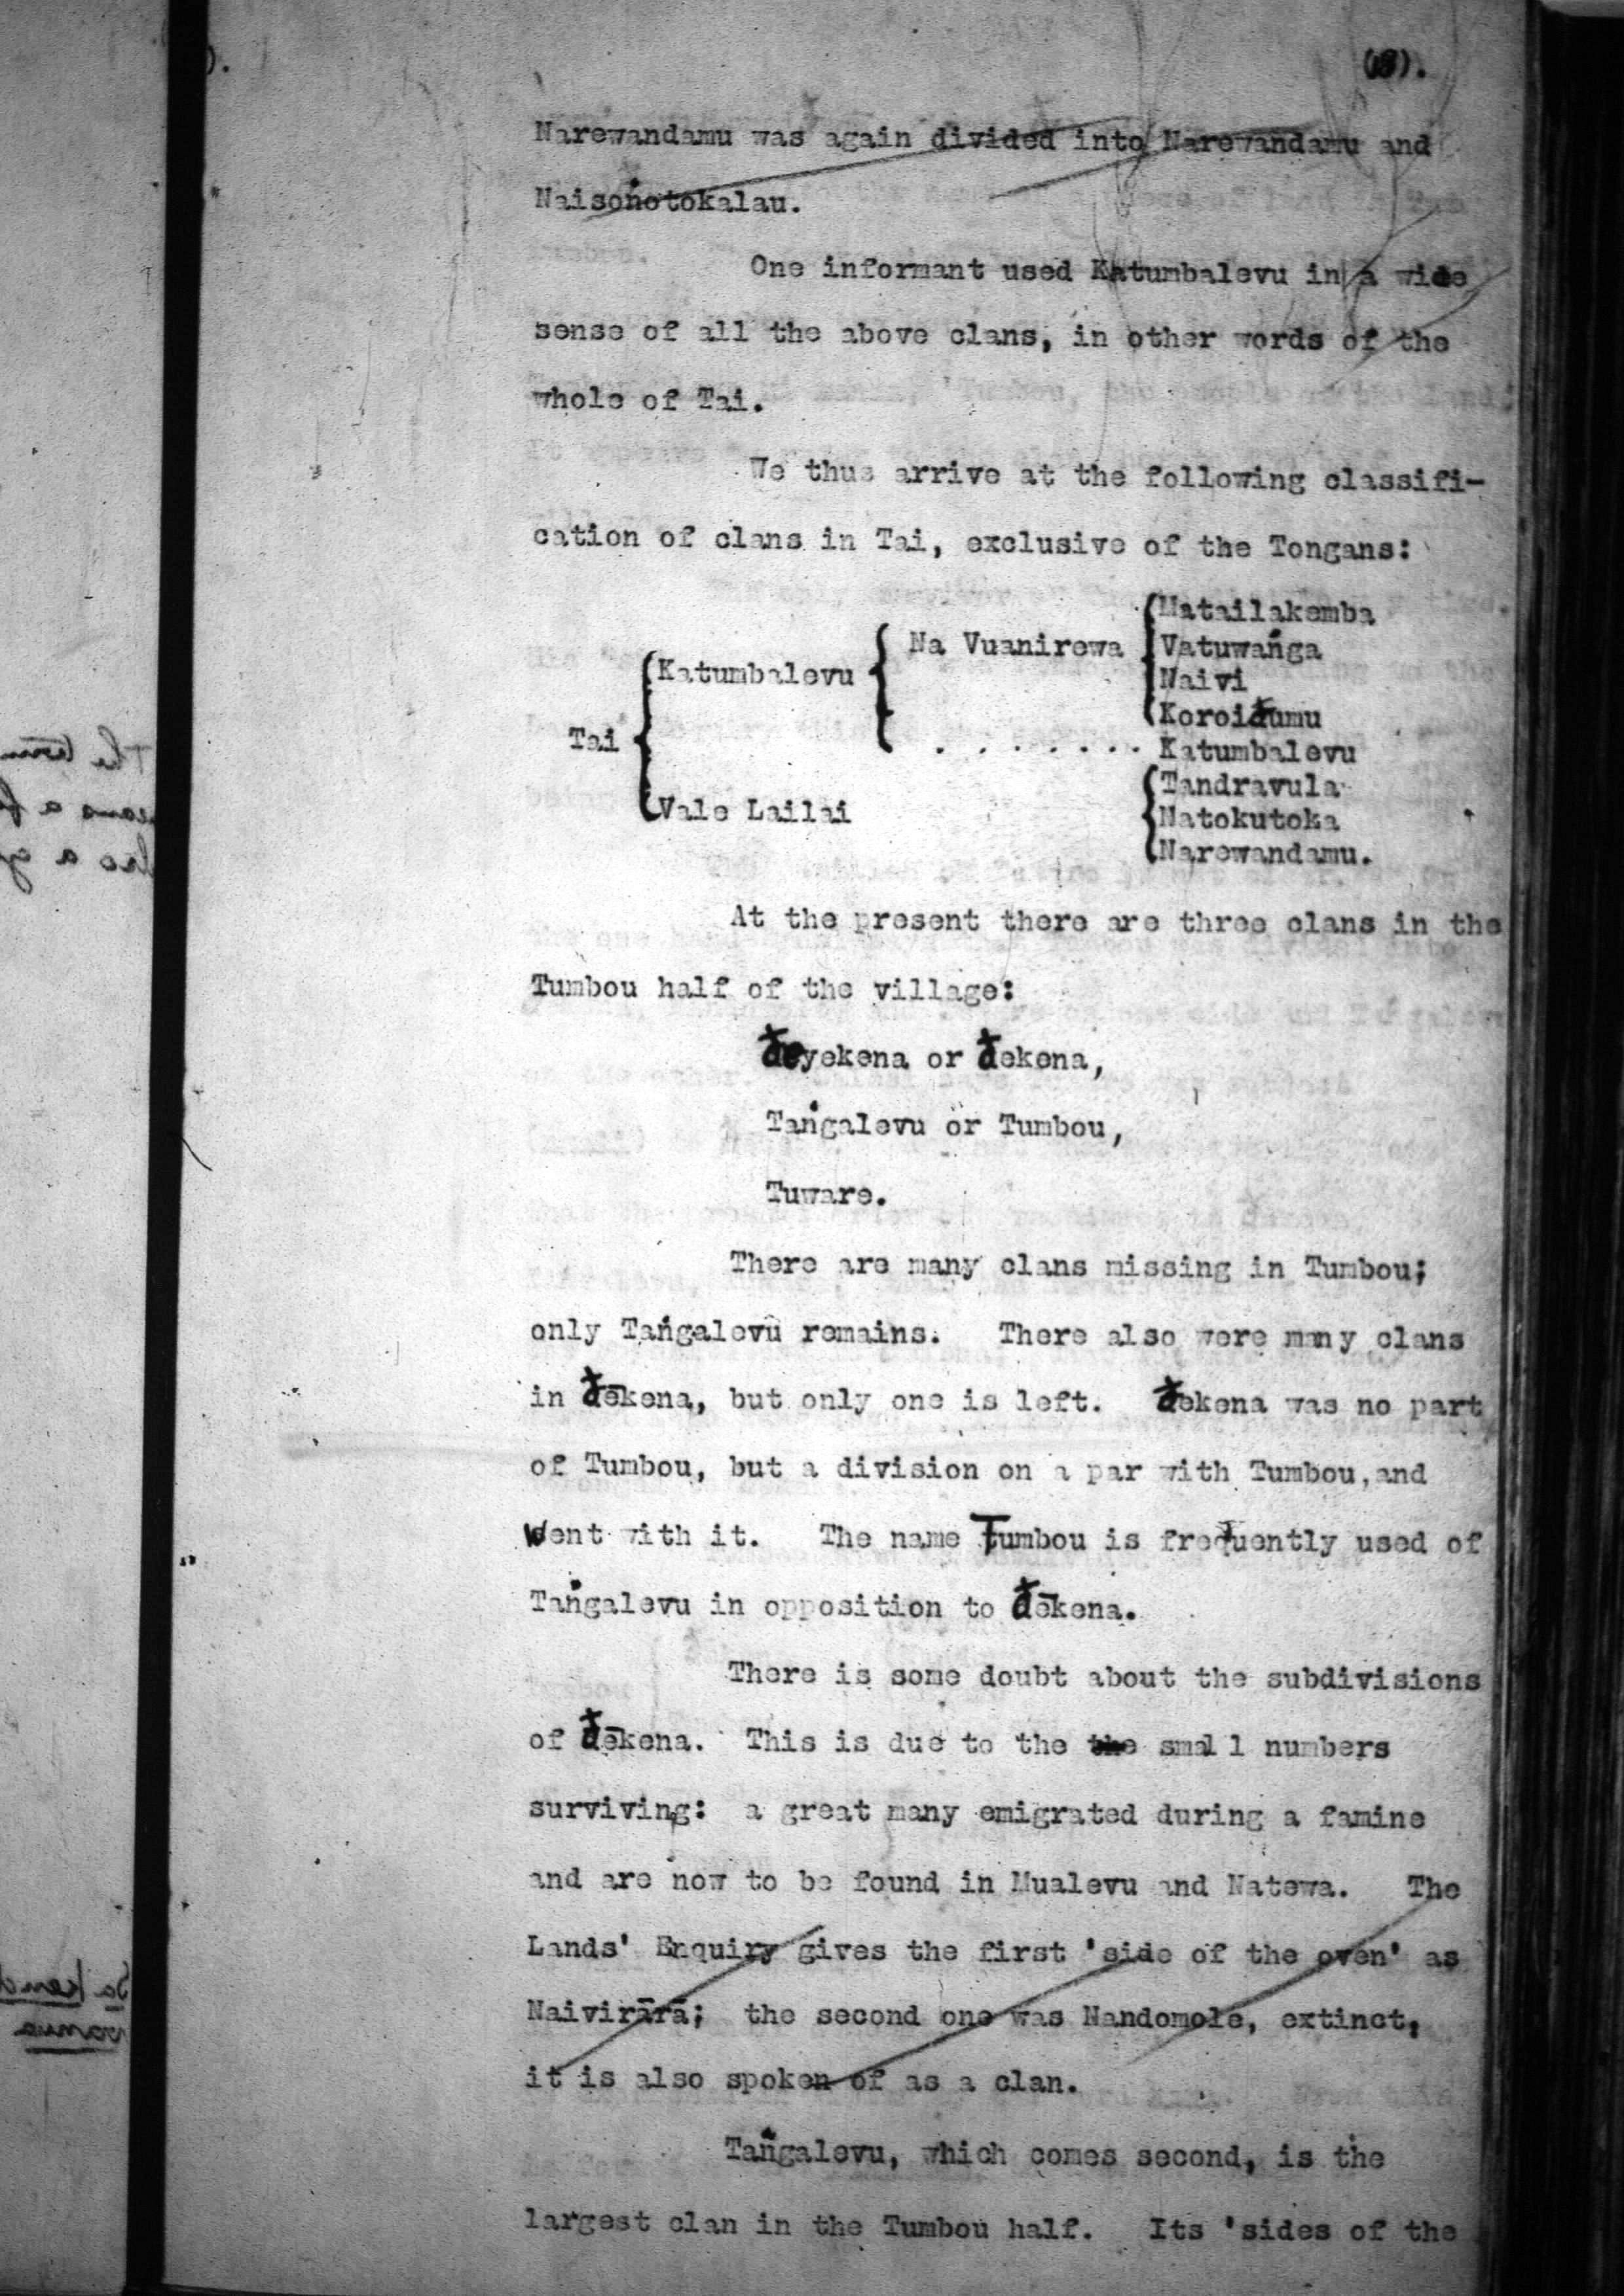 (8).
Narewandamu was again divided into Narewandamu and
Naisoṅotokalau.
One informant used Katumbalevu in a wide
sense of all the above clans, in other words of the
whole of Tai.
We thus arrive at the following classifi-
cation of clans in Tai, exclusive of the Tongans:
Matailakemba
Na Vuanirewa Vatuwaṅga
Katumbalevu Naivi
Koroiđumu
Tai . . . . . . . Katumbalevu
Tandravula
Vale Lailai Natokutoka
Narewandamu.
At the present there are three clans in the
Tumbou half of the village:
đeyekena or đekena,
Taṅgalevu or Tumbou,
Tuware.
There are many clans missing in Tumbou;
only Taṅgalevu remains. There also were many clans
in đēkena, but only one is left. đekena was no part
of Tumbou, but a division on a par with Tumbou, and
went with it. The name Tumbou is frequently used of
Taṅgalevu in opposition to đēkena.
There is some doubt about the subdivisions
of đēkena. This is due to the the small numbers
surviving: a great many emigrated during a famine
and are now to be found in Mualevu and Natewa. The
Lands' Enquiry gives the first 'side of the oven' as
Naivirārā; the second one was Nandomole, extinct,
it is also spoken of as a clan.
Taṅgalevu, which comes second, is the
largest clan in the Tumbou half. Its 'sides of the